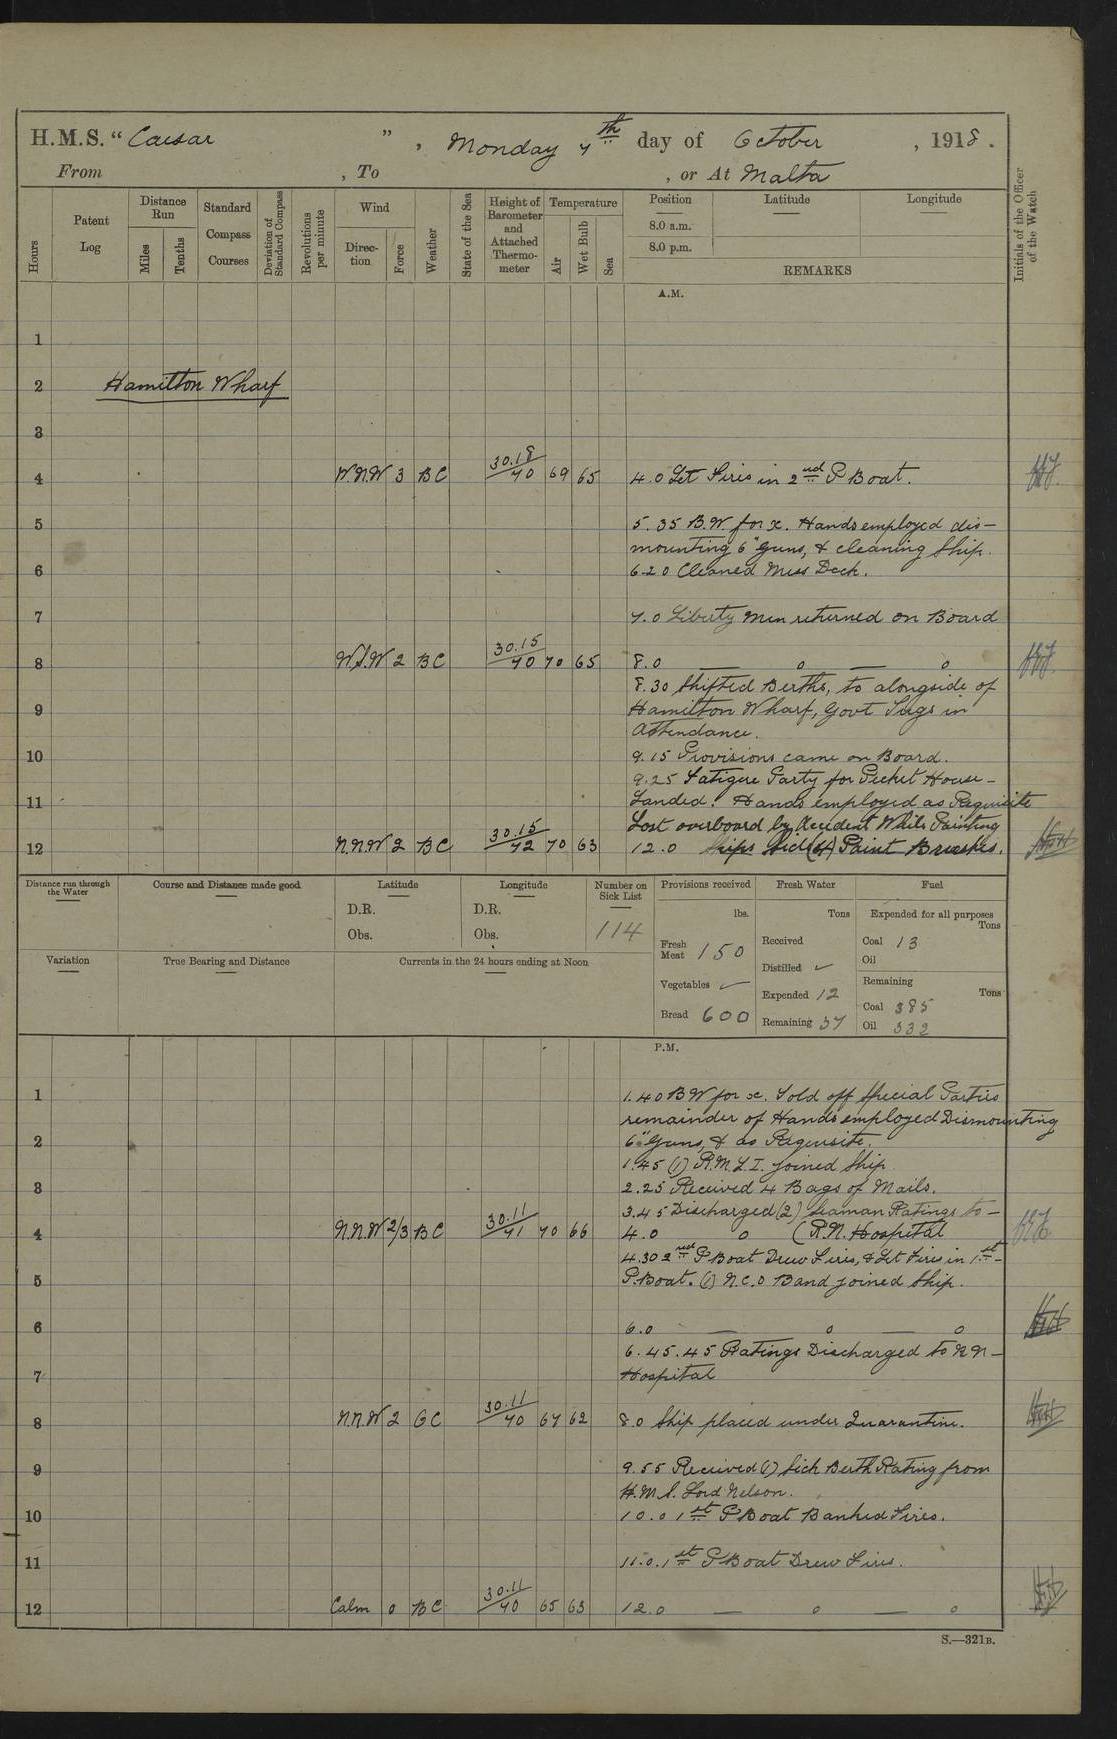 H.M.S. "Caesar", Monday 7th day of October, 1918.
From , To , or At Malta
Hours
Patent Log
Distance Run
Miles
Tenths
Standard Compass Courses
Deviation of Standard Compass
Revolutions per minute
Wind
Direction
Force
Weather
State of the Sea
Height of Barometer and Attached Thermometer
Temperature
Air
Wet Bulb
Sea
Position
Latitude
Longitude
8.0 a.m.
8.0 p.m.
REMARKS
Initials of the Officer of the Watch
A.M.
1
2 Hamilton Wharf
3
4 W.N.W 3 BC 30.18/70 69 65 4.0 Let Fires in 2nd P Boat.
5 5.35 B.W. for x. Hands employed dis-
mounting 6" Guns, & cleaning Ship.
6 6.20 Cleaned Mess Deck.
7 7.0 Liberty men returned on Board
8 W.S.W 2 BC 30.15/70 70 65 8.0 — o — o
8.30 Shifted Berths, to alongside of
9 Hamilton Wharf, Govt Tugs in
Attendance.
10 9.15 Provisions came on Board.
9.25 Fatigue Party for Picket House-
11 Landed. Hands employed as Requisite
Lost overboard by Accident Whils Painting
12 N.N.W 2 BC 30.15/72 70 63 12.0 Ships Side (4) Paint Brushes.
Distance run through the Water
Course and Distance made good
Latitude
D.R.
Obs.
Longitude
D.R.
Obs.
Number on Sick List
114
Provisions received
lbs.
Fresh Meat 150
Vegetables ✓
Bread 600
Fresh Water
Tons
Received
Distilled ✓
Expended 12
Remaining 37
Fuel
Expended for all purposes
Tons
Coal 13
Oil
Remaining
Tons
Coal 385
Oil 332
Variation
True Bearing and Distance
Currents in the 24 hours ending at Noon
P.M.
1 1.40 BW for x. Told off Special Parties
remainder of Hands employed Dismounting
2 6" Guns, & as Requisite.
1.45 (1) R.M.L.I. joined Ship
3 2.25 Received 4 Bags of Mails.
3.45 Discharged (2) Seaman Ratings to-
4 N.N.W 2/3 BC 30.11/71 70 66 4.0 o (R.N. Hospital
4.30 2nd P Boat Drew Fires, & Let Fires in 1st-
5 P.Boat. (1) N.C.O Band joined Ship.
6 6.0 — o — o
6.45. 45 Ratings Discharged to RN-
7 Hospital
8 N.N.W 2 GC 30.11/70 67 62 8.0 Ship placed under Quarantine.
9 9.55 Received (1) Sick Berth Rating from
H.M.S. Lord Nelson.
10 10.0 1st P Boat Banked Fires.
11 11.0. 1st P Boat Drew Fires.
12 Calm 0 BC 30.11/70 65 63 12.0 — o — o
S.—321B.